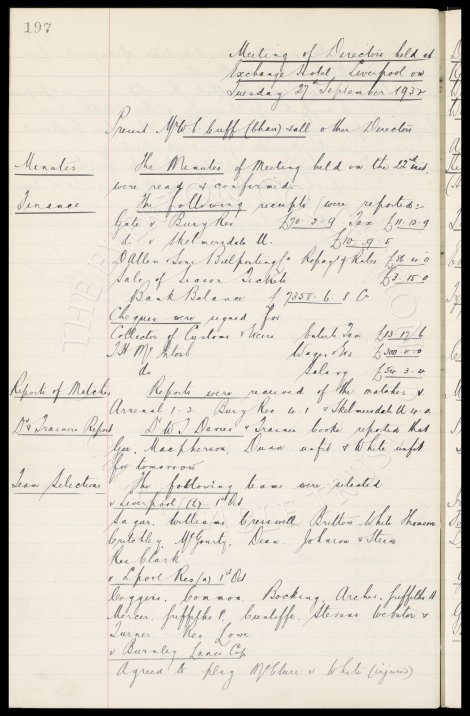 197
Meeting of Directors held at
Exchange Hotel, Liverpool on
Tuesday 27th September 1932
Present Mr W C Cuff (chair) & all other Directors
Minutes
The Minutes of Meeting held on the 22nd inst.
were read & confirmed.
Finance
The following receipts were reported:-
Gate v Bury Res £70. 2. 9 Tax £11. 13. 9
do v Skelmersdale U. £10. 9. 5
D Allen & Sons Billposting Repay of Rates
Sale of Season Tickets £3. 15. 0
Bank Balance £7358. 6. 8 Cr
Cheques were signed for
Collector of Customs & Excise Entertt Tax £13 17/6
T H McIntosh Wages & Exs £300. 0. 0
do Salary £34. 3. 4
Reports of Matches
Reports were received of the matches v
Arsenal 1. 2. Bury Res 4. 1 & Skelmersdale U 4. 0.
Dr & Trainers Report
Dr W J Davies & Trainer Cooke reported that
Gee, Macpherson, Dunn unfit & White unfit
for tomorrow
Team Selections
The following teams were selected
v Liverpool (L) 1st Oct
Sagar, Williams, Cresswell, Britton, White Thomson
Critchley, McGourty, Dean, Johnson & Stein
Res Clark
v Lpool Res (a) 1st Oct
Coggins, Common, Bocking, Archer, Griffiths H
Mercer, Griffiths P. Cunliffe, Stevens Webster &
Turner. Res Lowe
v Burnley Lancs Cup
Agreed to play McClure v White (injured)